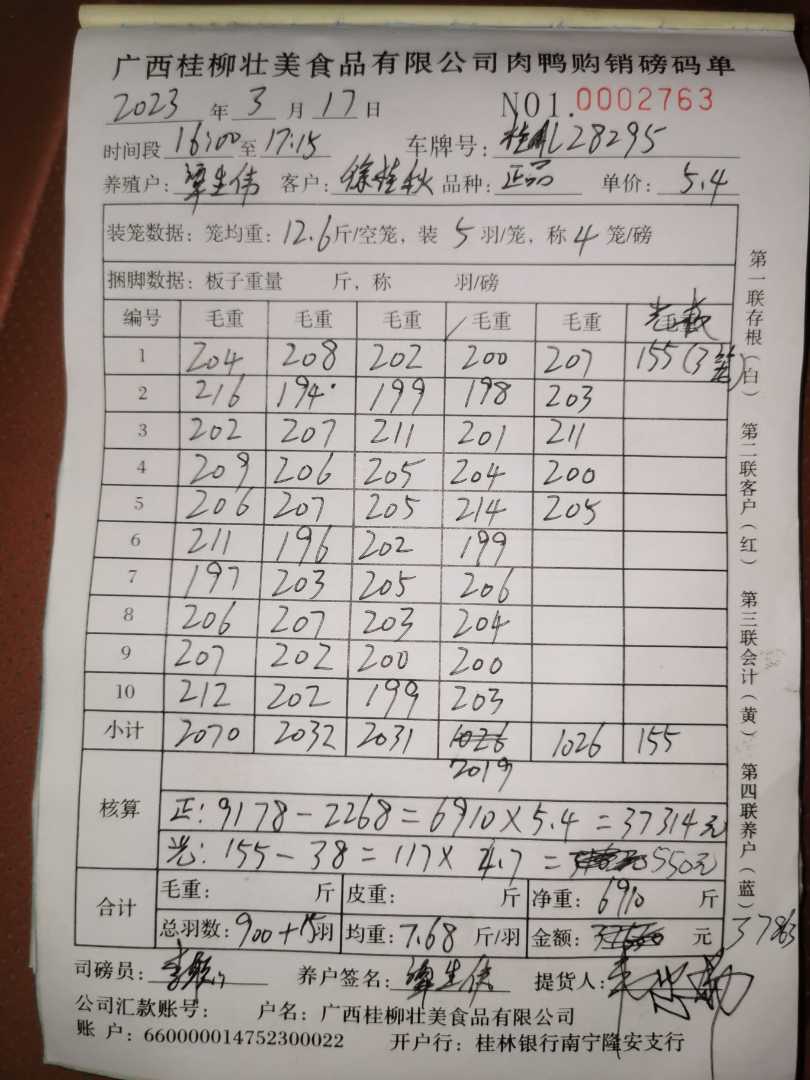 广西桂柳壮美食品有限公司肉鸭购销磅码单
2023 年 3 月 17 日 NO1.0002763
时间段 16:00 至 17:15 车牌号: 28295
养殖户: 客户: 徐桂秋 品种: 正品 单价: 5.4
装笼数据: 笼均重: 12.6 斤/空笼, 装 5 羽/笼, 称 4 笼/磅
捆脚数据: 板子重量 斤, 称 羽/磅
编号 毛重 毛重 毛重 毛重 毛重
1 204 208 202 200 207 155(3笼)
2 216 194 199 198 203
3 202 207 211 201 211
4 209 206 205 204 200
5 206 207 205 214 205
6 211 196 202 199
7 197 203 205 206
8 206 207 203 204
9 207 202 200 200
10 212 202 199 203
小计 2070 2032 2031 1026 1026 155
2019
核算
正: 9178-2268=6910×5.4=37314元
光: 155-38=117×4.7=550元
合计
毛重: 斤 皮重: 斤 净重: 6910 斤
总羽数: 900+15羽 均重: 7.68 斤/羽 金额: 元
司磅员: 养户签名: 提货人:
公司汇款账号: 户名: 广西桂柳壮美食品有限公司
账 户: 660000014752300022 开户行: 桂林银行南宁隆安支行
第一联存根(白) 第二联客户(红) 第三联会计(黄) 第四联养户(蓝)